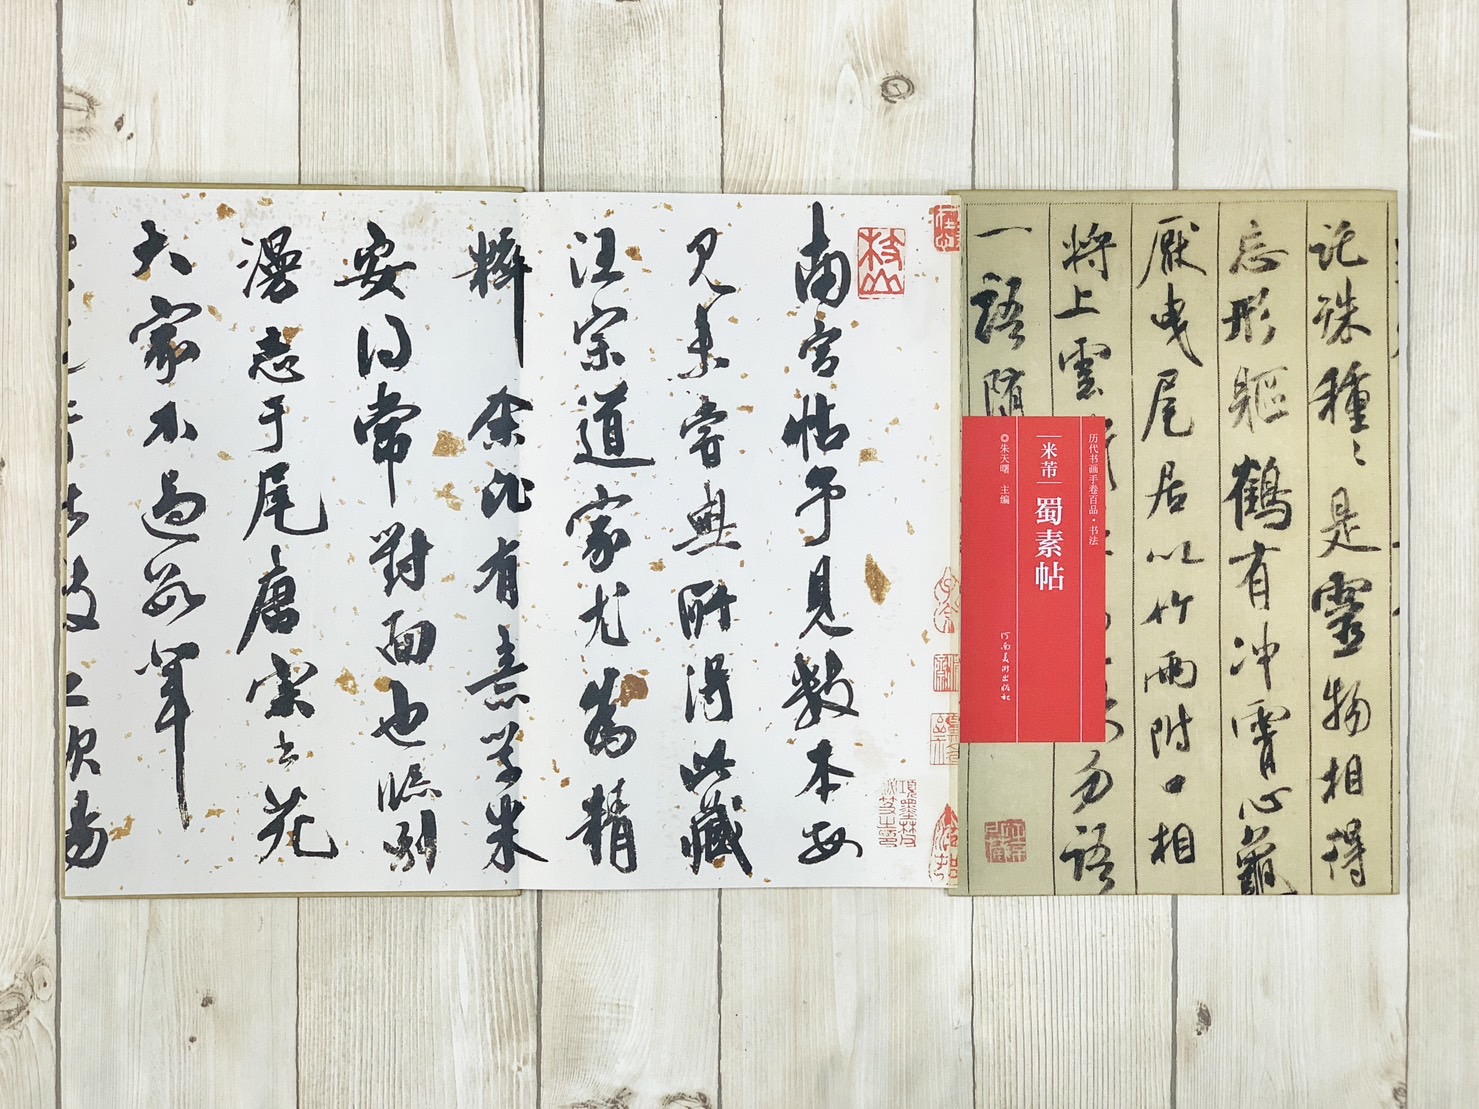 記珠種〻是靈物相得
忘形軀鶴有冲霄心龜
厭曳尾居以竹兩附口相
將上雲
勿語
一語墮
历代书画手卷百品·书法
米芾 蜀素帖
◎朱天曙 主编
河南美术出版社
枝山
南宮帖予見數本
見未嘗與所得此藏
汪宗道家尤為精
粹 余比有意學米
安得常對面也臨別
漫志于尾唐宋
大家不過數輩